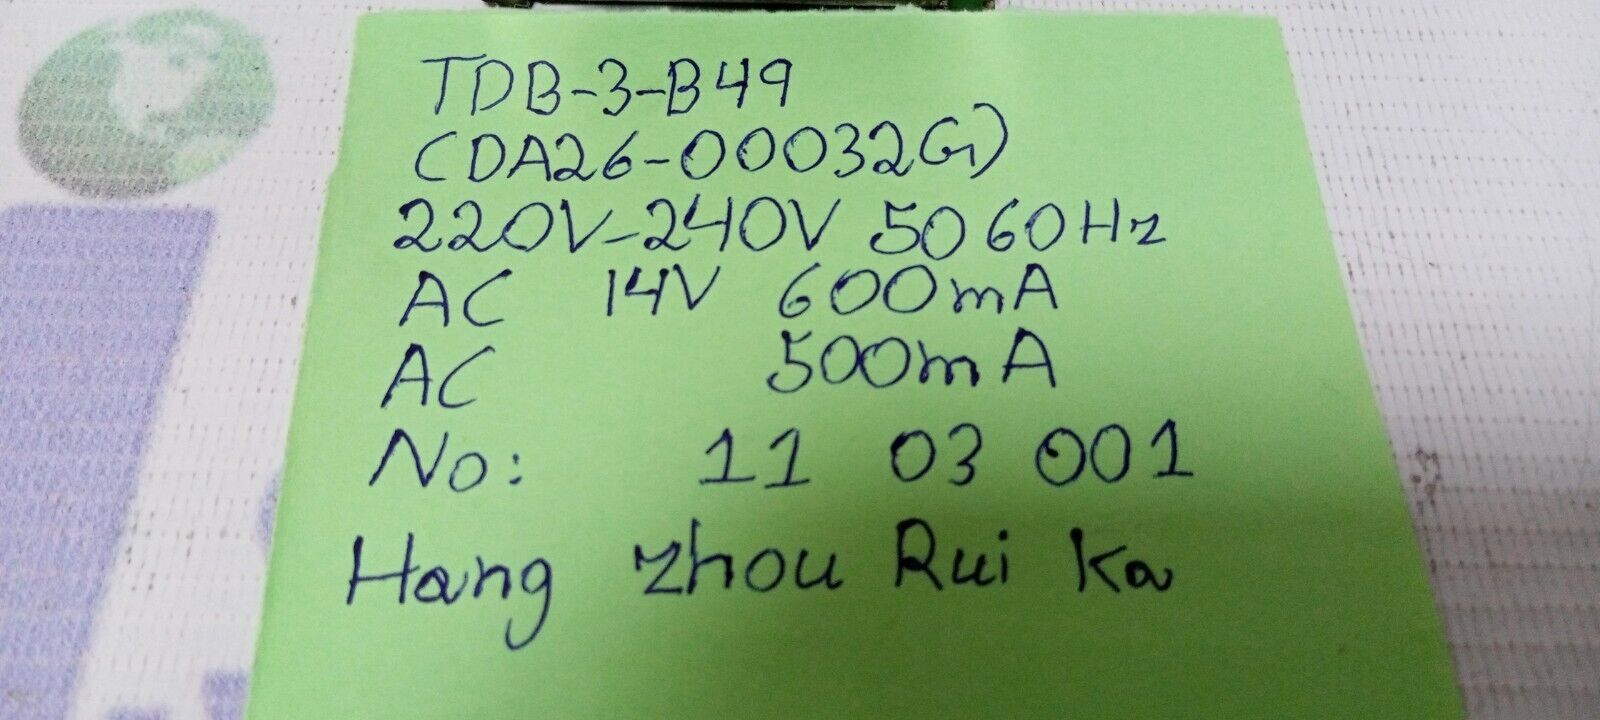 TDB-3-B49
(DA26-00032G)
220V-240V 50 60Hz
AC 14V 600mA
AC 500mA
No: 11 03 001
Hang zhou Rui Ka